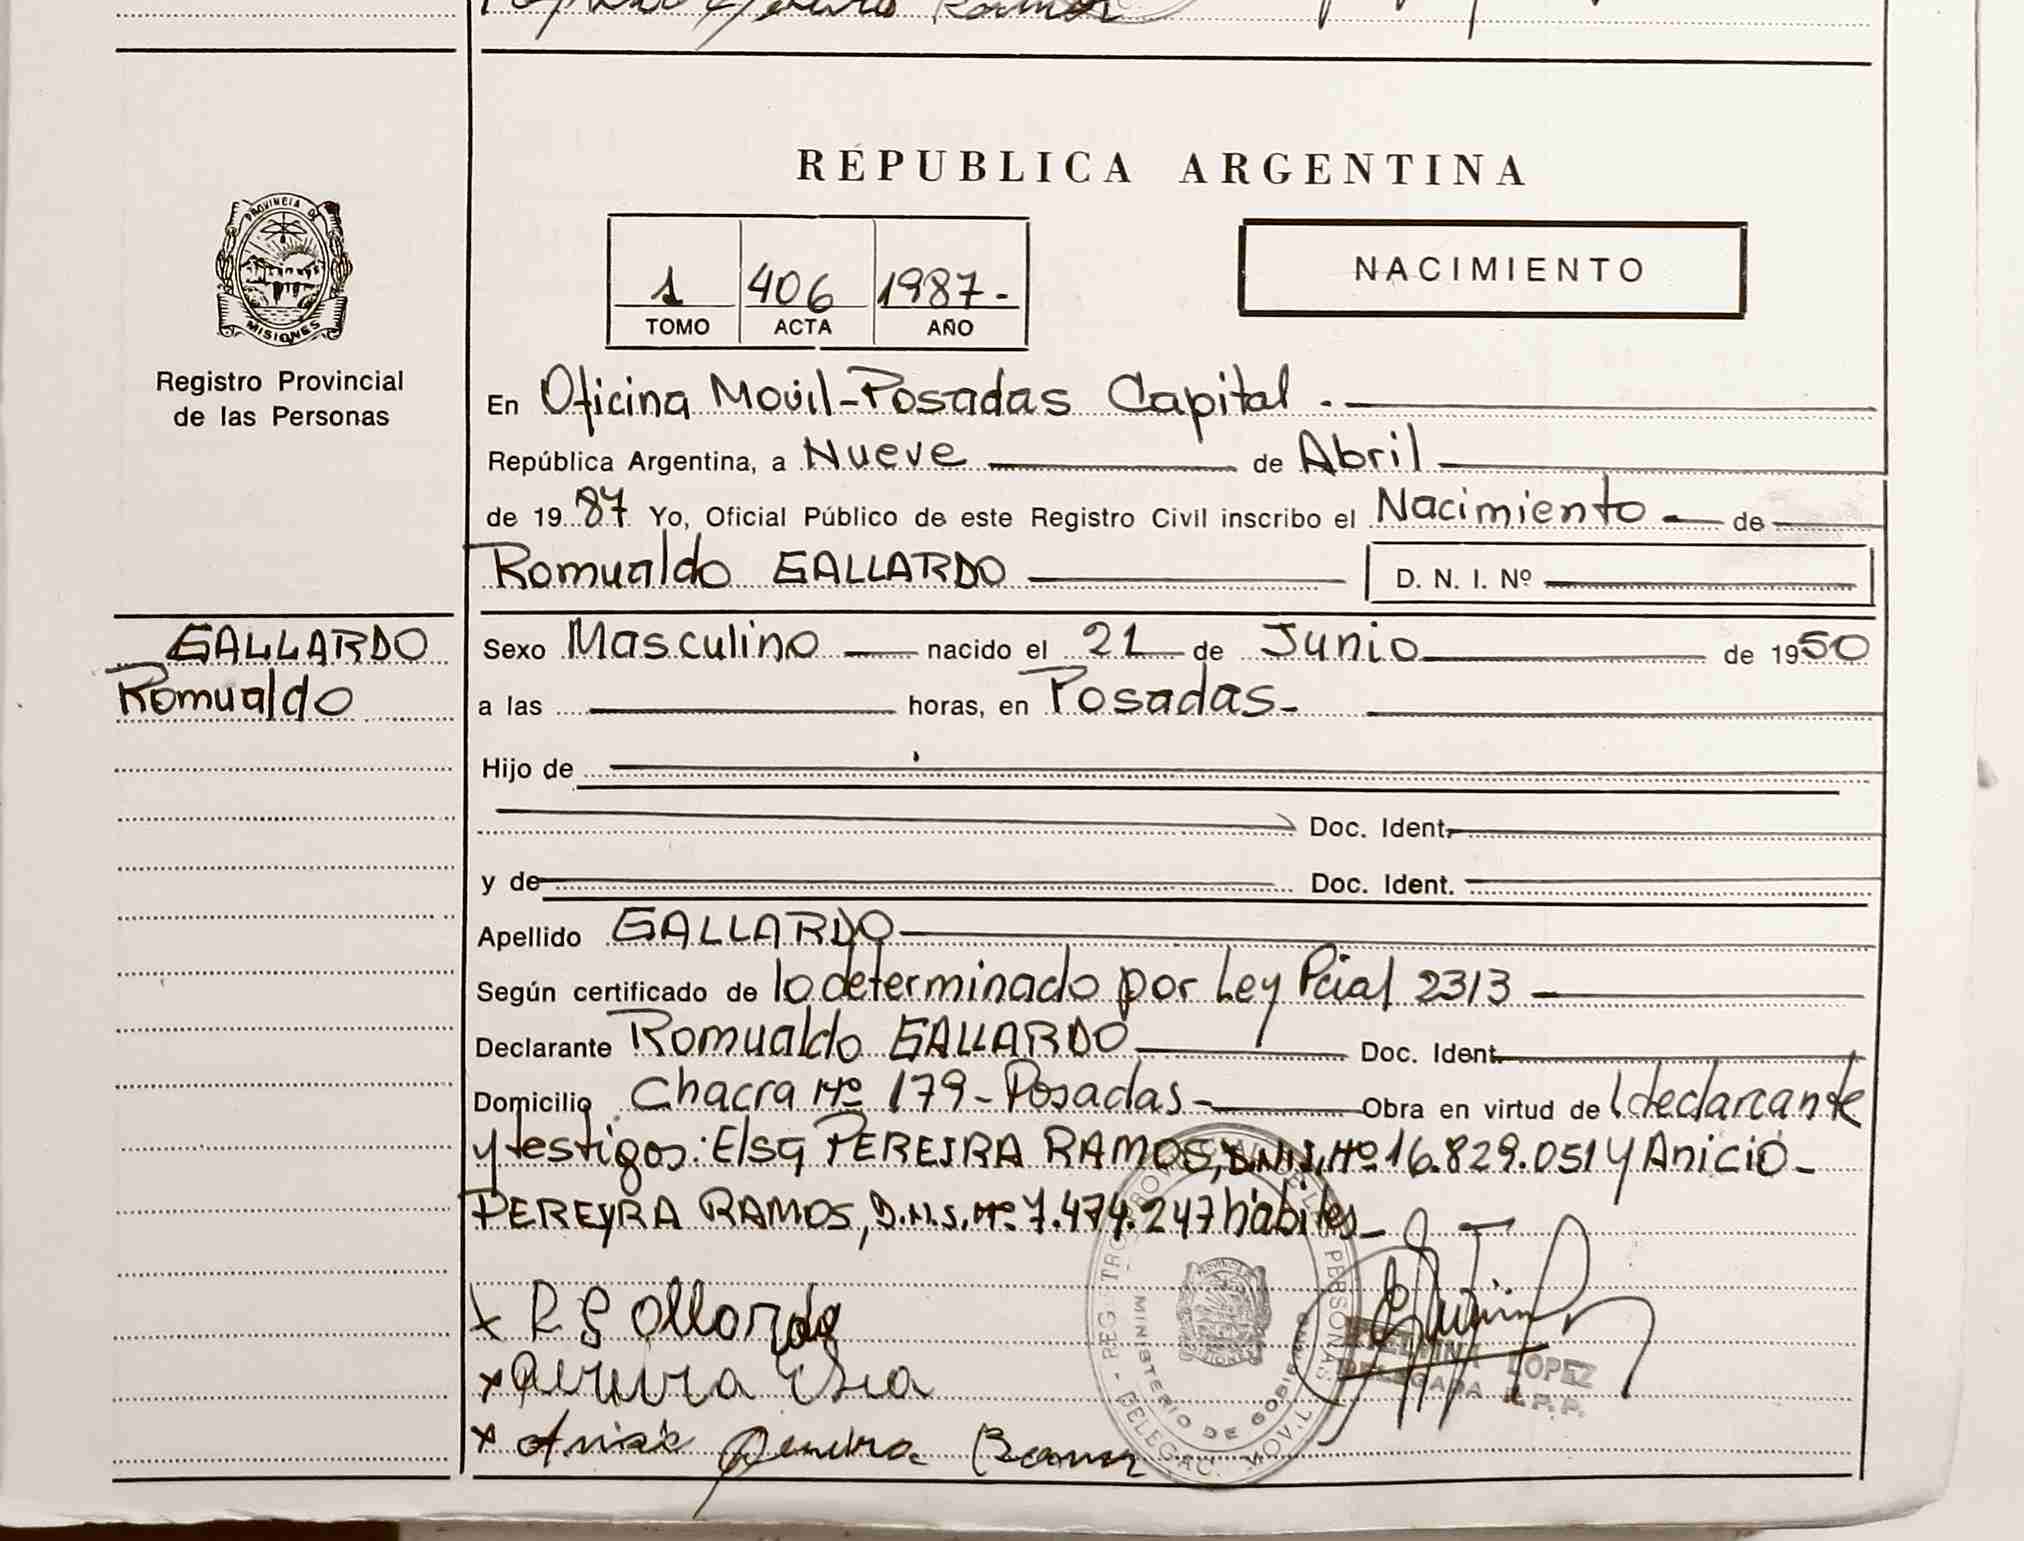 REPUBLICA ARGENTINA
PROVINCIA DE
MISIONES
Registro Provincial
de las Personas
1 406 1987-
TOMO ACTA AÑO
NACIMIENTO
En Oficina Movil-Posadas Capital.-
República Argentina, a Nueve de Abril
de 1987 Yo, Oficial Público de este Registro Civil inscribo el Nacimiento de
Romualdo GALLARDO D. N. I. Nº
GALLARDO
Romualdo
Sexo Masculino nacido el 21 de Junio de 1950
a las horas, en Posadas-
Hijo de
Doc. Ident.
y de Doc. Ident.
Apellido GALLARDO
Según certificado de lo determinado por Ley Pcial 2313
Declarante Romualdo GALLARDO Doc. Ident.
Domicilio Chacra Nº 179-Posadas- Obra en virtud de l declarcante
y testigos: Elsa PEREIRA RAMOS, D.N.I. Nº 16.829.051 y Anicio-
PEREYRA RAMOS, D.N.I. Nº 7.474.247 hábiles-
x R Gallardo
x Pereira Elsa
x Pereira Ramos
REGISTRO PROVINCIAL DE LAS PERSONAS
MINISTERIO DE GOBIERNO
DELEGAC. MOVIL
LOPEZ
DELEGADA R.P.P.